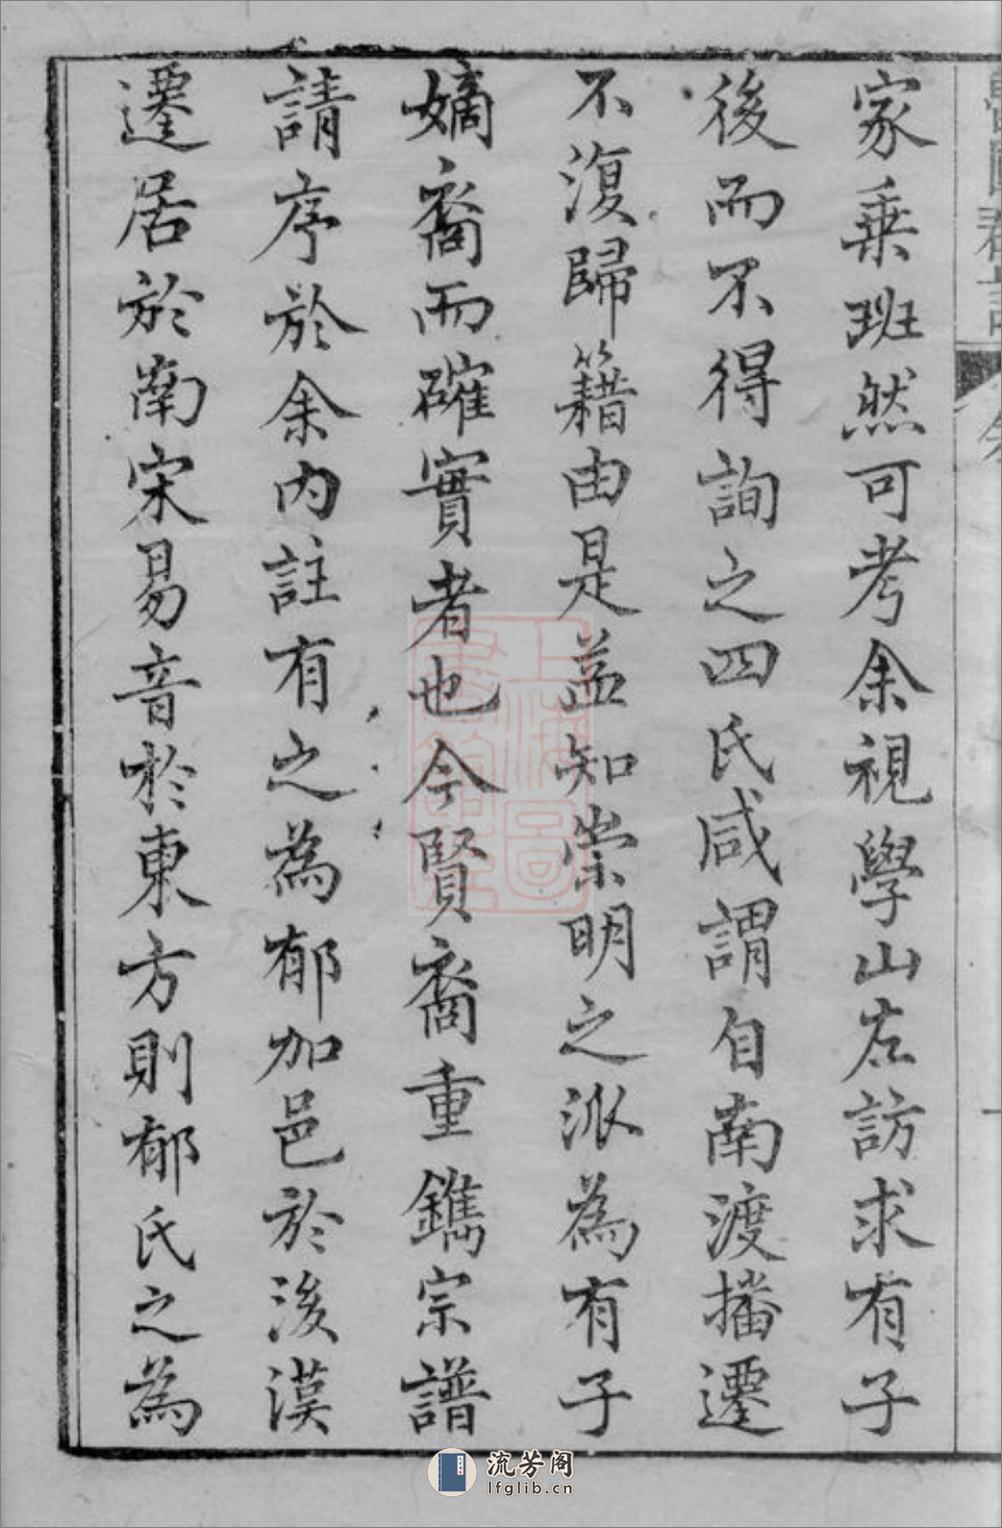 家乗班然可考余視學山左訪求有子
後而不得詢之四氏咸謂自南渡播遷
不復歸籍由是益知崇明之派為有子
嫡裔而確實者也今賢裔重鐫宗譜
請序於余内註有之為郁加邑於後漢
遷居於南宋易音於東方則郁氏之為
上海圖書館藏
流芳阁
lfglib.cn